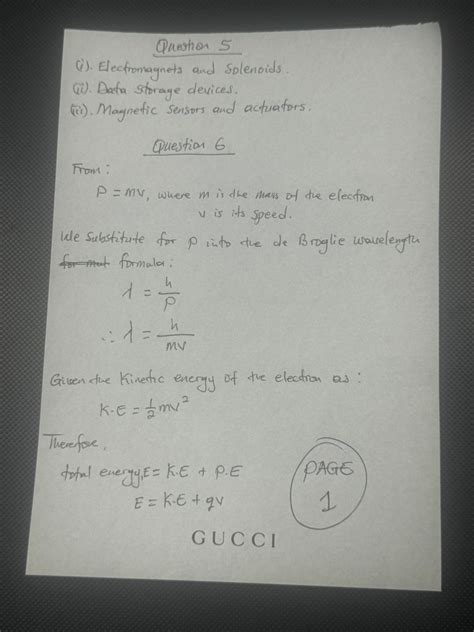 Question 5
(i). Electromagnets and Solenoids.
(ii). Data storage devices.
(iii). Magnetic sensors and actuators.
Question 6
From:
P = mv, where m is the mass of the electron
v is its speed.
We Substitute for p into the de Broglie wavelength
formula:
λ = h/p
∴ λ = h/mv
Given the Kinetic energy of the electron as:
K.E = 1/2 mv²
Therefore,
total energy, E = K.E + P.E
E = K.E + qv
PAGE
1
GUCCI